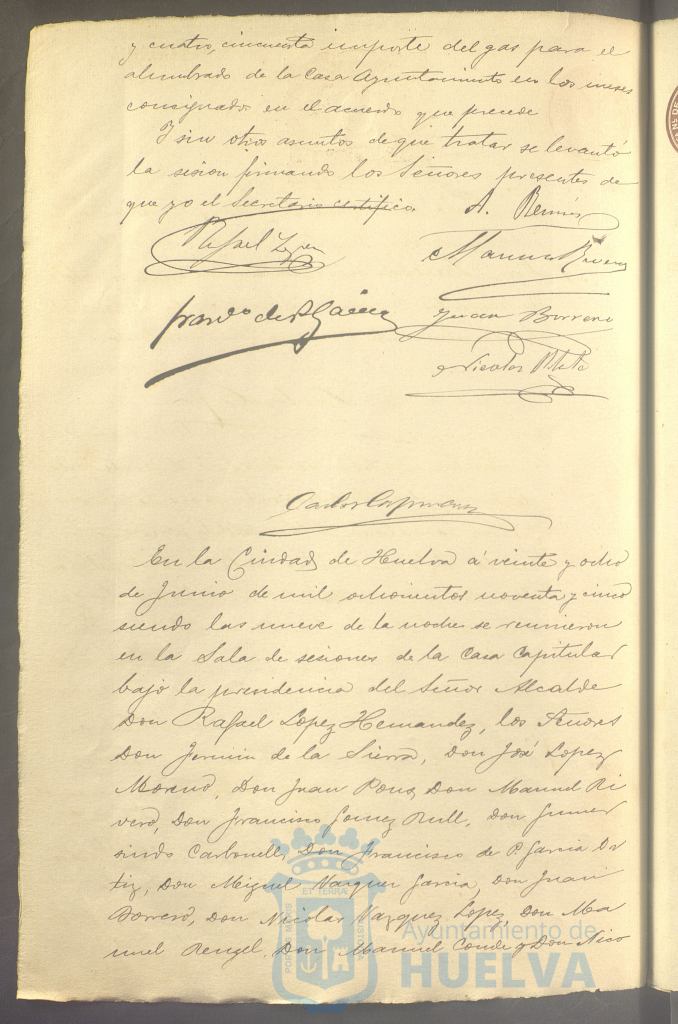 y cuatro, cincuenta importe del gas para el
alumbrado de la Casa Ayuntamiento en los meses
consignados en el acuerdo que precede
Y sin otros asuntos de que tratar se levantó
la sesion firmando los Señores presentes de
que yo el Secretario certifico.
A.
Rafael
Manuel Rivero
de
Juan Borrero
Nicolas
Carlos
En la Ciudad de Huelva á veinte y ocho
de Junio de mil ochocientos noventa y cinco
siendo las nueve de la noche se reunieron
en la Sala de sesiones de la Casa Capitular
bajo la presidencia del Señor Alcalde
Don Rafael Lopez Hernandez, los Señores
Don Fermin de la Sierra, Don José Lopez
Moreno, Don Juan Pons, Don Manuel Ri
vero, Don Francisco Gomez Rull, Don Gumer
sindo Carbonell, Don Francisco de P. Garcia Or
tiz, Don Miguel Vazquez Garcia, Don Juan
Borrero, Don Nicolas Vazquez Lopez, Don Ma
nuel Rengel, Don Manuel Conde y Don Nico
ET TERRÆ
Ayuntamiento de
HUELVA